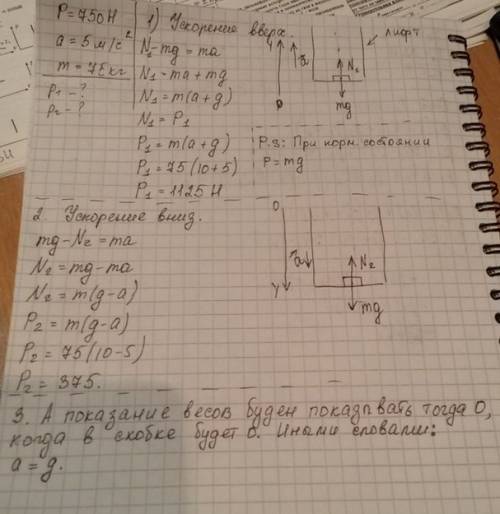 P = 750 Н
a = 5 м/с²
m = 75 кг
P1 - ?
P2 - ?
1) Ускорение вверх.
N1 - mg = ma
N1 = ma + mg
N1 = m(a+g)
N1 = P1
P1 = m(a+g)
P1 = 75(10+5)
P1 = 1125 Н
y
a
0
N1
mg
лифт
P.S: При норм. состоянии
P = mg
2. Ускорение вниз.
mg - N2 = ma
N2 = mg - ma
N2 = m(g-a)
P2 = m(g-a)
P2 = 75(10-5)
P2 = 375.
0
a
y
N2
mg
3. А показание весов буден показывать тогда 0,
когда в скобке будет 0. Иными словами:
a = g.